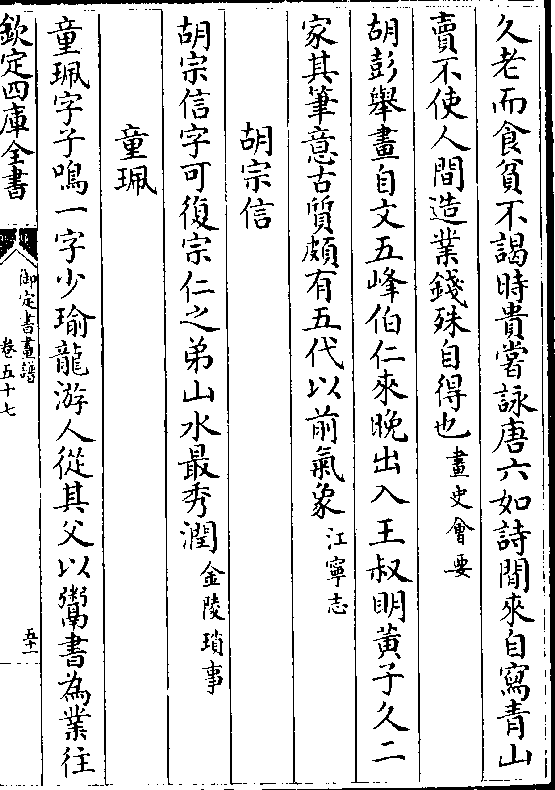 久老而食貧不謁時貴嘗詠唐六如詩閒來自寫青山
賣不使人間造業錢殊自得也畫史會要
胡彭舉畫自文五峰伯仁來晚出入王叔明黃子久二
家其筆意古質頗有五代以前氣象江寧志
胡宗信
胡宗信字可復宗仁之弟山水最秀潤金陵瑣事
童珮
童珮字子鳴一字少瑜龍游人從其父以鬻書為業往
欽定四庫全書
御定書畫譜
卷五十七
五十一